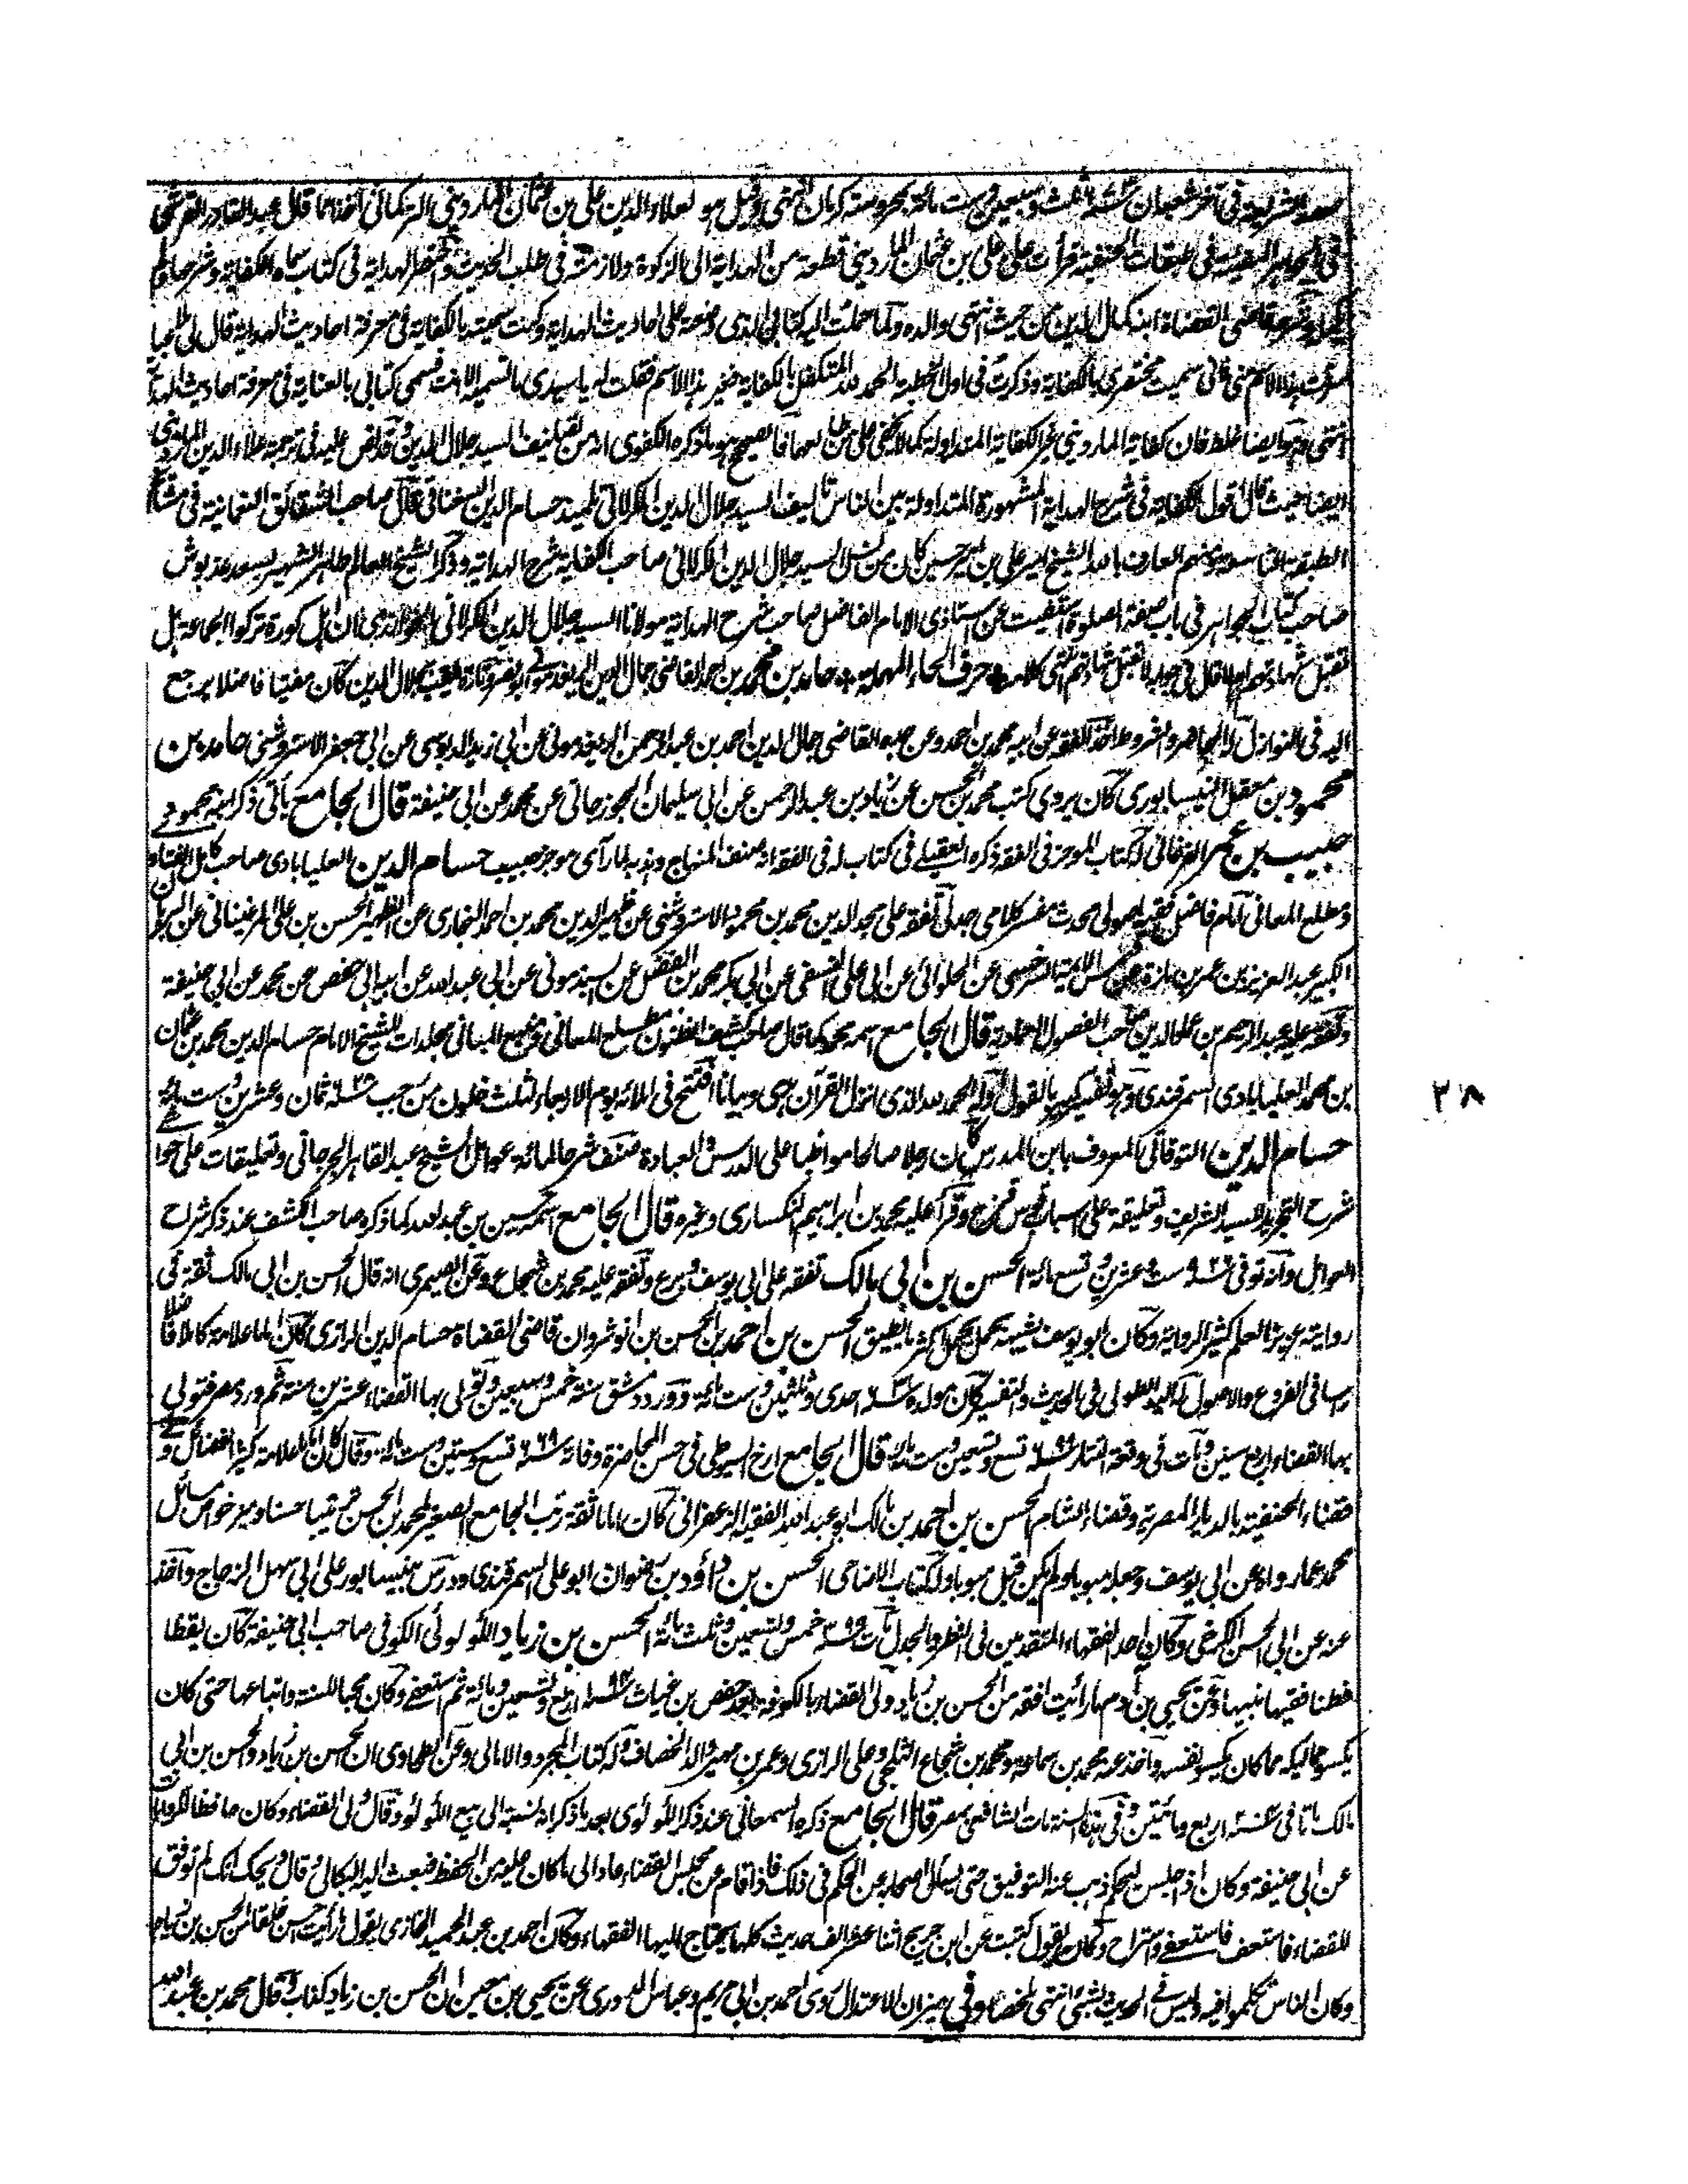 صدر الشريعة في آخر شعبان سنة ثلث وسبعين وست مائة بحروسة كرمان انتهى وقيل هو لعلاء الدين علي بن عثمان المارديني التركماني اخذا مما قال عبد القادر القرشي
في الجواهر المضيئة في طبقات الحنفية قرأت على علي بن عثمان المارديني قطعة من الهداية الى الزكوة ولازمته في طلب الحديث واختصر الهداية في كتاب سماه الكفاية وشرحها ولم
قاضي القضاة ابنه كمال الدين من حيث انتهى والده ولما حملت اليه كتابي الذي وضعته على احاديث الهداية وكنت سميته بالكفاية في معرفة احاديث الهداية قال لي
سرقت هذا الاسم مني فاني سميت مختصري بالكفاية وذكرت في اول الخطبة الحمد لله المتكفل بالكفاية فغير هذا الاسم فقلت له يا سيدي ما تسميه الا انت فسمى كتابي بالعناية في معرفة احاديث الهداية
انتهى وهو ايضا غلط فان كفاية المارديني غير الكفاية المتداولة كما لا يخفى على من طالعها فالصحيح هو ما ذكره الكفوي انه من تصنيف السيد جلال الدين وقد نص عليه في ترجمة علاء الدين المارديني
ايضا حيث قال اقول الكفاية في شرح الهداية المشهورة المتداولة بين الناس تاليف السيد جلال الدين الكرلاني تلميذ حسام الدين السغناقي قال صاحب الشقائق النعمانية في مشائخ
الطبقة الخامسة ومنهم العارف بالله الشيخ امير علي بن امير حسين كان من نسل السيد جلال الدين الكرلاني صاحب الكفاية شرح الهداية وذكر الشيخ العالم طاهر الشهير بسعد غديوش
صاحب كتاب الجواهر في باب صفة الصلوة استفتيت عن استاذي الامام الفاضل صاحب شرح الهداية مولانا السيد جلال الدين الكرلاني الخوارزمي ان اهل كورة تركوا الجماعة هل
تقبل شهادتهم ام لا قال في جوابه لا تقبل شهادتهم انتهى كلامه حرف الحاء المهملة حامد بن محمد بن احمد القاضي جمال الدين الريغدموني ابو نصر وتارة يلقب بجلال الدين كان مفتيا فاضلا يرجع
اليه في النوازل له المحاضر والشروط اخذ الفقه عن ابيه محمد بن احمد وعن جده القاضي جمال الدين احمد بن عبد الرحمن الريغدموني عن ابي زيد الدبوسي عن ابي جعفر الاستروشني حامد بن
محمود بن معقل النيسابوري كان يروي كتب محمد بن الحسن عن زياد بن عبد الرحمن عن ابي سليمان الجوزجاني عن محمد عن ابي حنيفة قال الجامع يأتي ذكر ابيه محمود
حبيب بن عمر الفرغاني له كتاب الموجز في الفقه ذكره العقيلي في كتاب له في الفقه انه صنف المنهاج وهذبه لما رآى موجز حبيب حسام الدين العليابادي صاحب كامل الفتاوى
ومطلع المعاني امام فاضل فقيه اصولي محدث مفسر كلامي جدلي تفقه على مجد الدين محمد بن محمود الاستروشني عن ظهير الدين محمد بن احمد البخاري عن الظهير الحسن بن علي المرغيناني عن البرهان
الكبير عبد العزيز بن عمر بن مازة عن شمس الائمة السرخسي عن الحلوائي عن ابي علي النسفي عن ابي بكر محمد بن الفضل عن السبذموني عن ابي عبد الله عن ابيه ابي حفص عن محمد عن ابي حنيفة
وتفقه عليه عبد الرحيم بن عماد الدين صاحب الفصول العمادية قال الجامع اسمه محمد كما قال صاحب كشف الظنون مطلع المعاني ومنبع المباني مجلدات للشيخ الامام حسام الدين محمد بن عثمان
بن محمد العليابادي السمرقندي وهو تفسير كبير بالقول اوله الحمد لله الذي انزل القرآن هدى وبيانا افتتح في املائه يوم الاربعاء لثلث خلون من رجب سنة ٦٢٨ ثمان وعشرين وست مائة
حسام الدين التوقاتي المعروف بابن المدرس كان رجلا صالحا مواظبا على الدرس والعبادة صنف شرحا لمائة عوامل الشيخ عبد القاهر الجرجاني وتعليقات على حواشي
شرح التجريد للسيد الشريف وتعليقة على اسباب قوس قزح وقرأ عليه محمد بن ابراهيم النكساري وغيره قال الجامع اسمه حسين بن عبد الله كما ذكره صاحب الكشف عند ذكر شراح
العوامل وانه توفي سنة ٩٢٦ ست وعشرين وتسع مائة الحسن بن ابي مالك تفقه على ابي يوسف وبرع وتفقه عليه محمد بن شجاع وعن الصيمري انه قال الحسن بن ابي مالك ثقة في
روايته عزيز العلم كثير الرواية وكان ابو يوسف يشبهه بجمل يحمل اكثر ما يطيق الحسن بن احمد بن الحسن بن انوشروان قاضي القضاة حسام الدين الرازي كان اماما علامة كاملا فاضلا
راسا في الفروع والاصول له اليد الطولى في الحديث والتفسير كان مولده سنة ٦٣١ احدى وثلثين وست مائة وورد دمشق سنة خمس وسبعين وتولى بها القضاء عشرين سنة ثم ورد مصر فتولى
بها القضاء اربع سنين ومات في وقعة التتار سنة ٦٩٩ تسع وتسعين وست مائة قال الجامع ارخ السيوطي في حسن المحاضرة وفاته سنة ٦٦٩ تسع وستين وست مائة وقال كان اماما علامة كثير الفضائل ولي
قضاء الحنفية بالديار المصرية وقضاء الشام الحسن بن احمد بن مالك ابو عبد الله الفقيه الزعفراني كان اماما ثقة رتب الجامع الصغير لمحمد بن الحسن ترتيبا حسنا وميز خواص مسائل
محمد عما رواه عن ابي يوسف وجعله مبوبا ولم يكن قبل مبوبا وله كتاب الاضاحي الحسن بن داؤد بن رضوان ابو علي السمرقندي ودرس بنيسابور على ابي سهل الزجاج واخذ
عنه عن ابي الحسن الكرخي وكان احد الفقهاء المتقدمين في النظر والجدل مات سنة ٣٩٥ خمس وتسعين وثلث مائة الحسن بن زياد اللؤلوئي الكوفي صاحب ابي حنيفة كان يقظا
فطنا فقيها نبيها وعن يحيى بن آدم ما رأيت افقه من الحسن بن زياد ولى القضاء بالكوفة بعد حفص بن غياث سنة ١٩٤ اربع وتسعين ومائة ثم استعفى وكان محبا للسنة واتباعها حتى كان
يكسو مماليكه مما كان يكسو نفسه واخذ عنه محمد بن سماعة ومحمد بن شجاع الثلجي وعلي الرازي وعمر بن مهير والد الخصاف وله كتاب المجرد والامالي وعن الطحاوي ان الحسن بن زياد والحسن بن ابي
مالك ماتا في سنة اربع ومائتين وفي هذه السنة مات الشافعي بمصر قال الجامع ذكره السمعاني عند ذكر اللؤلوئي بعد ما ذكر انه نسبة الى بيع اللؤلؤ وقال ولى القضاء وكان حافظا لروايات
عن ابي حنيفة وكان اذا جلس ليحكم ذهب عنه التوفيق حتى يسئل اصحابه عن الحكم في ذلك فاذا قام عن مجلس القضاء عاد الى ما كان عليه من الحفظ فبعث اليه البكائي وقال ويحك انك لم توفق
للقضاء فاستعف فاستعفى واستراح وكان يقول كتبت عن ابن جريج اثنا عشر الف حديث كلها يحتاج اليها الفقهاء وكان احمد بن عبد الحميد الحازمي يقول ما رأيت احسن خلقا من الحسن بن زياد
وكان الناس تكلموا فيه وليس في الحديث بشيئ انتهى ملخصا وفي ميزان الاعتدال روى احمد بن ابي مريم وعباس الدوري عن يحيى بن معين ان الحسن بن زياد كذاب وقال محمد بن عبد الله
٢٨